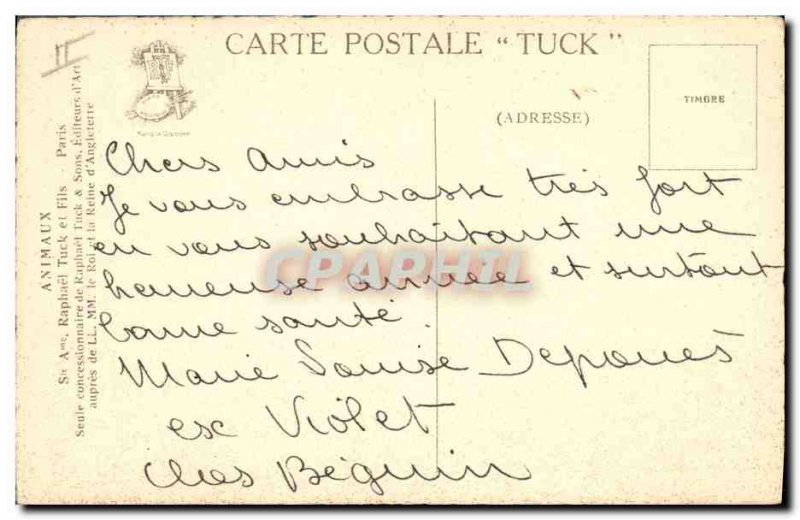 CARTE POSTALE “ TUCK ”
(ADRESSE)
TIMBRE
ANIMAUX
Sté Ame, Raphaël Tuck et Fils - Paris
Seule concessionnaire de Raphaël Tuck & Sons, Éditeurs d'Art
auprès de LL. MM. le Roi et la Reine d'Angleterre
Chers Amis
Je vous embrasse très fort
en vous souhaitant une
heureuse année et surtout
bonne santé.
Marie Louise
Violet
Béguin
CPAPHIL